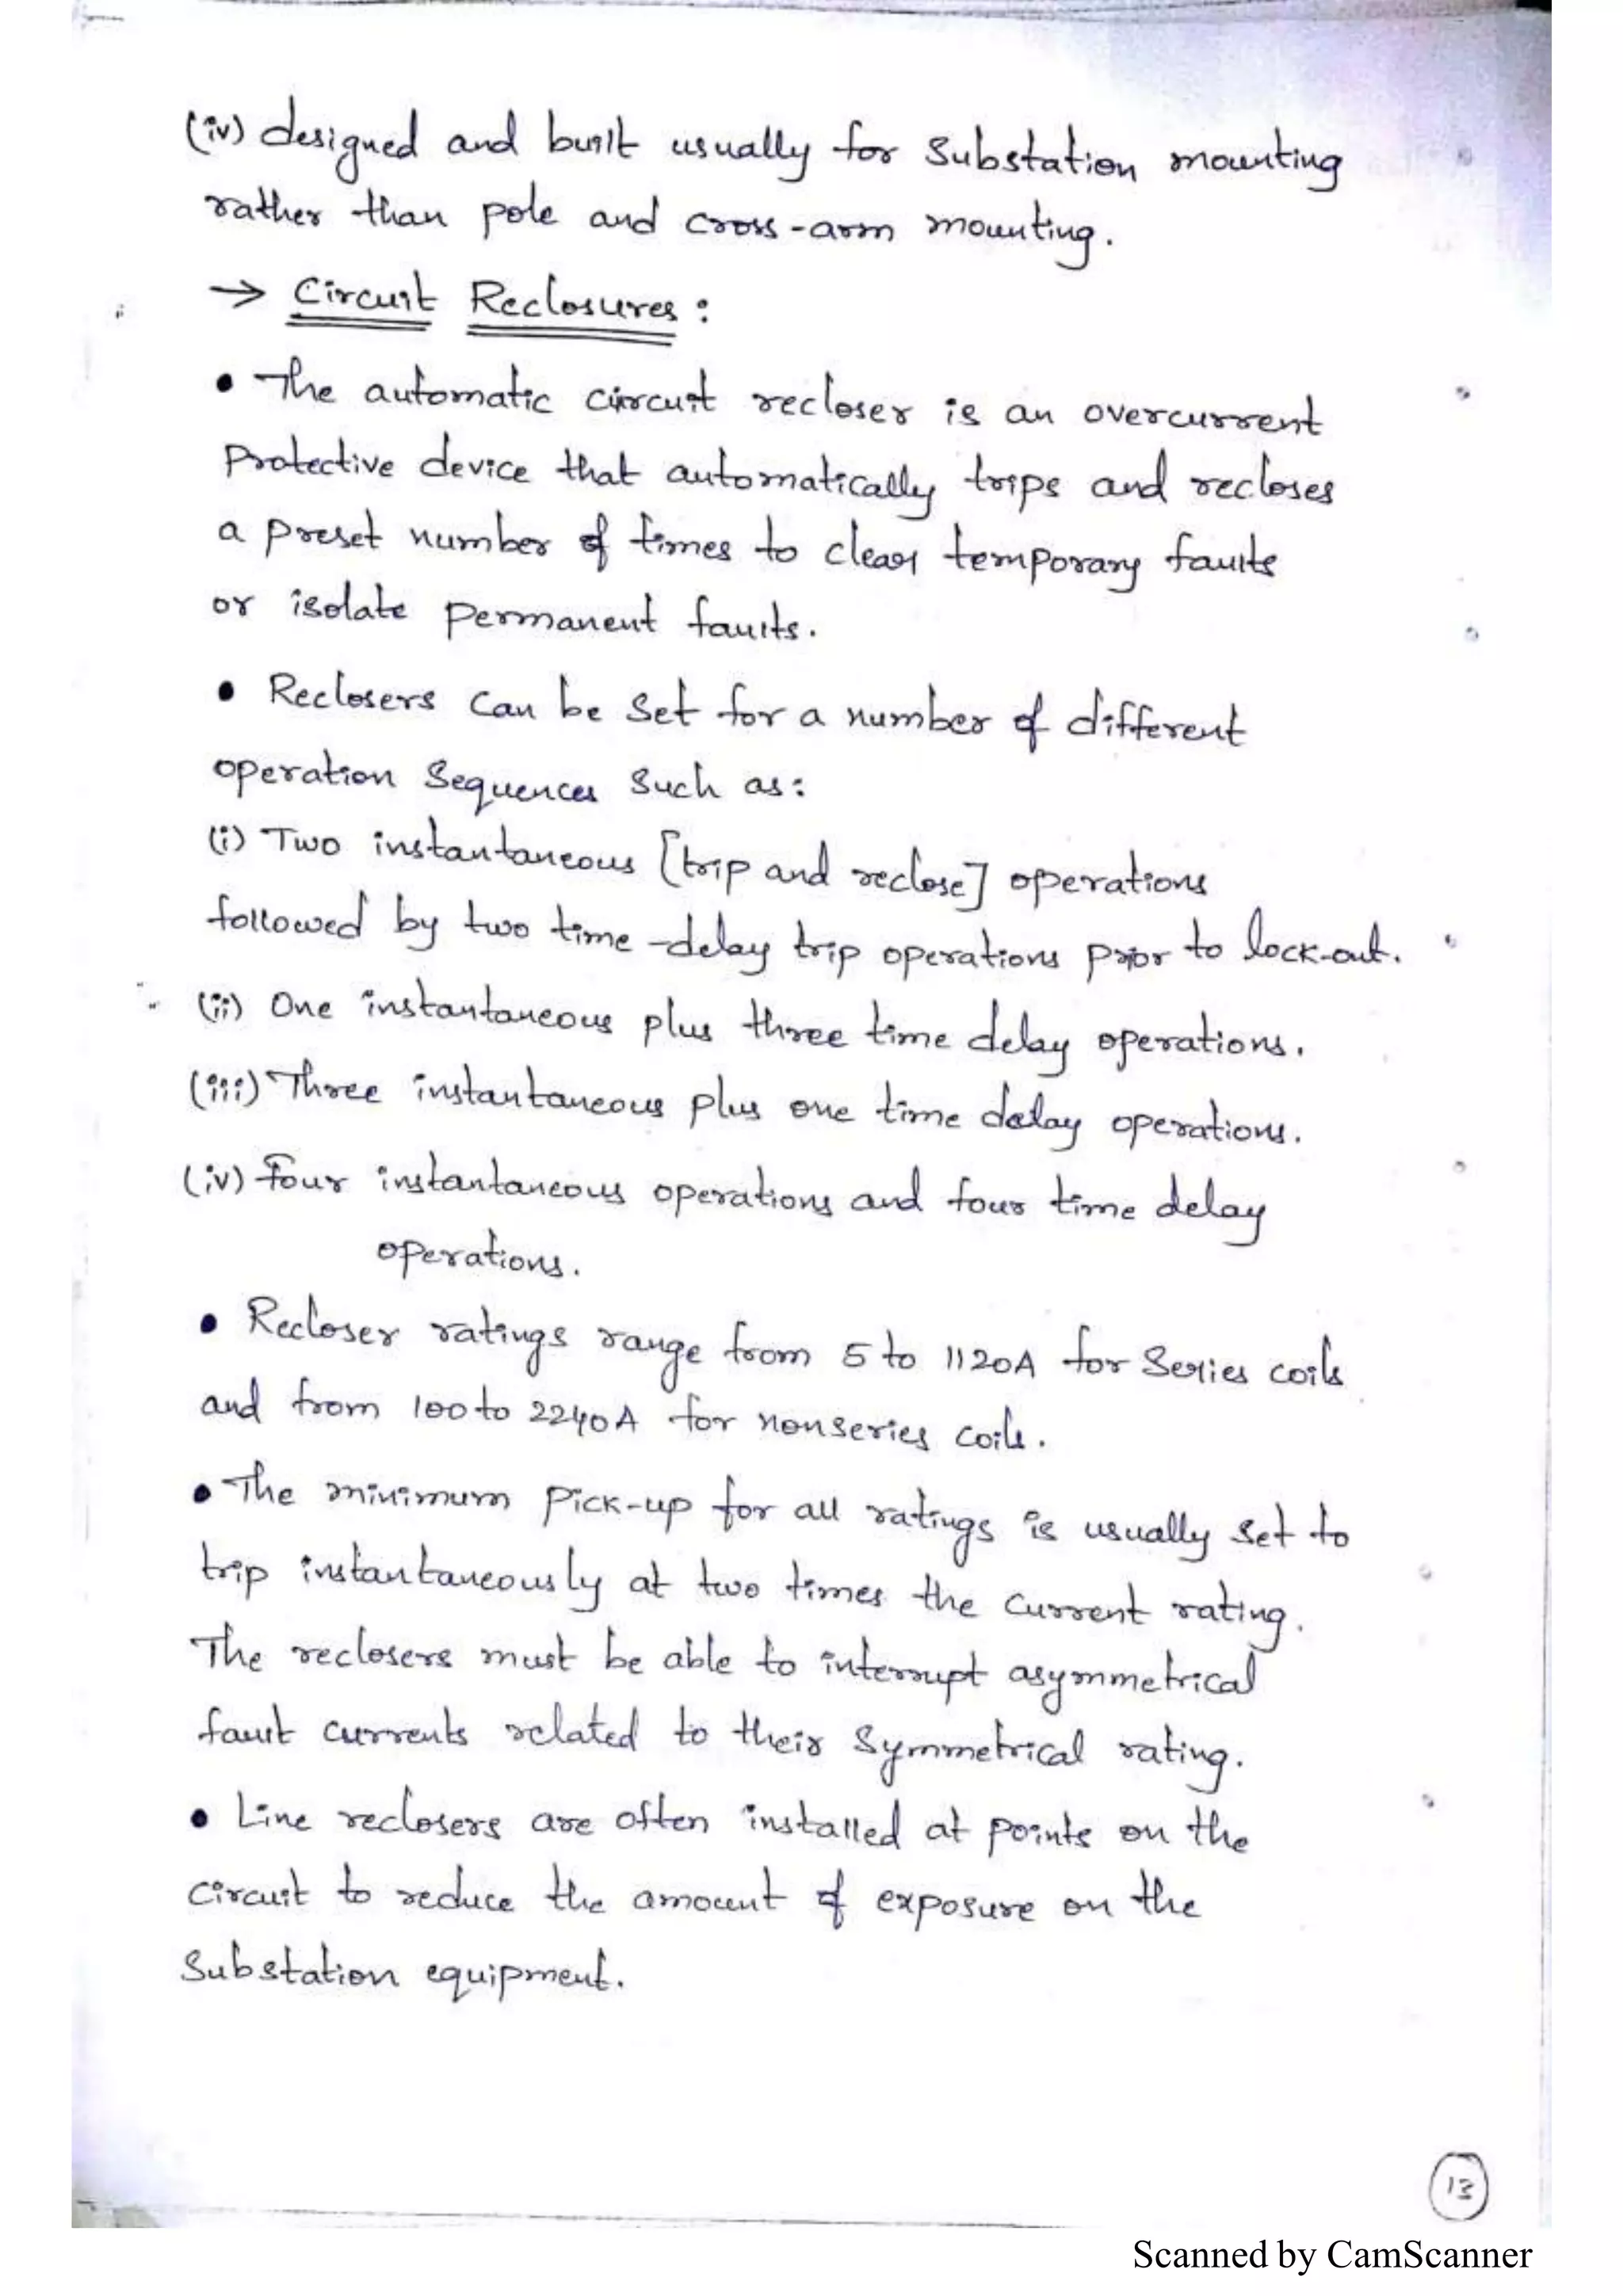 (iv) designed and built usually for Substation mounting
rather than pole and cross-arm mounting.
→ Circuit Reclosures :
• The automatic circuit recloser is an overcurrent
Protective device that automatically trips and recloses
a preset number of times to clear temporary faults
or isolate permanent faults.
• Reclosers can be set for a number of different
operation Sequences Such as:
(i) Two instantaneous [trip and reclose] operations
followed by two time-delay trip operations prior to lock-out.
(ii) One instantaneous plus three time delay operations.
(iii) Three instantaneous plus one time delay operations.
(iv) Four instantaneous operations and four time delay
operations.
• Recloser ratings range from 5 to 1120A for Series coils
and from 100 to 2240A for nonseries coils.
• The minimum pick-up for all ratings is usually set to
trip instantaneously at two times the current rating.
The reclosers must be able to interrupt asymmetrical
fault currents related to their Symmetrical rating.
• Line reclosers are often installed at points on the
circuit to reduce the amount of exposure on the
Substation equipment.
13
Scanned by CamScanner